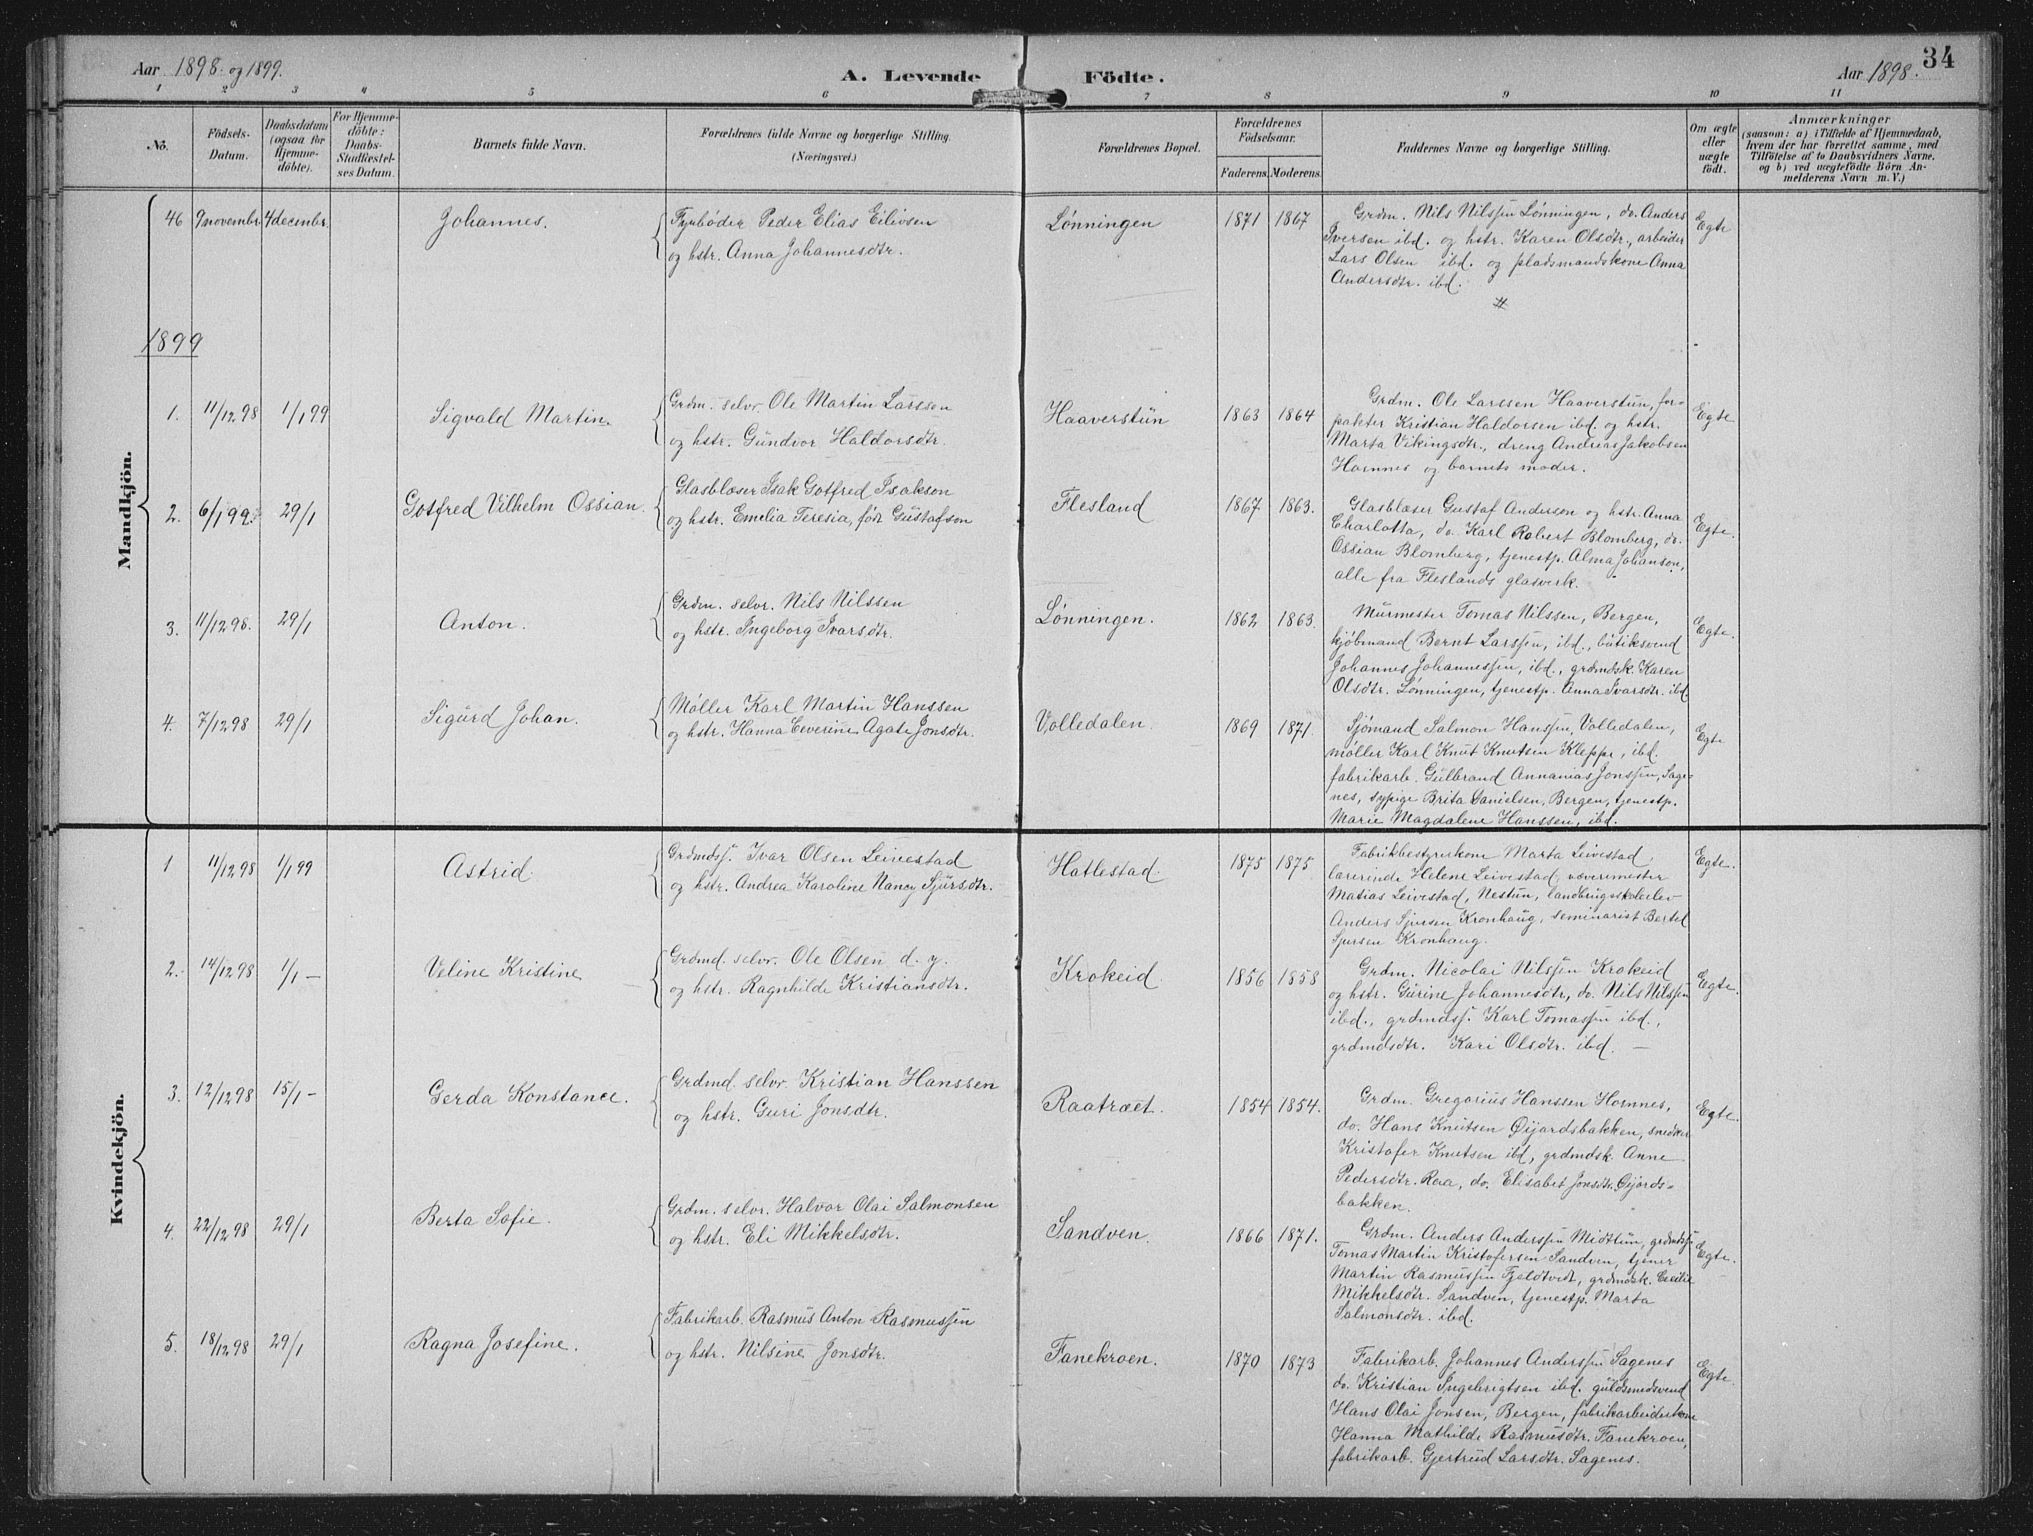 34
Aar 1898 og 1899.
A. Levende Födte.
Aar 1898.
1 2 3 4 5 6 7 8 9 10 11
No.
Födsels-Datum.
Daabsdatum (ogsaa for Hjemmedöbte).
For Hjemmedöbte: Daabs-Stadfæstelses Datum.
Barnets fulde Navn.
Forældrenes fulde Navne og borgerlige Stilling.
(Næringsvei.)
Forældrenes Bopæl.
Forældrenes Födselsaar.
Faderens. Moderens.
Faddernes Navne og borgerlige Stilling.
Om ægte eller uægte födt.
Anmærkninger
(saasom: a) i Tilfælde af Hjemmedaab,
hvem der har forrettet samme, med
Tilföielse af to Daabsvidners Navne,
og b) ved uægtefödte Börn An-
melderens Navn m. V.)
Mandkjön.
46 9 novembr. 4 decembr. Johannes.
Fyrbøder Peder Elias Eilivsen
og hstr. Anna Johannesdtr.
Lønningen 1871 1867
Grdm. Nils Nilssen Lønningen, do. Anders
Iversen ibd. og hstr. Karen Olsdtr., arbeider
Lars Olsen ibd. og pladsmandskone Anna
Andersdtr. ibd.
Egte
1899
1. 11/12 98 1/1 99 Sigvald Martin.
Grdm. selvr. Ole Martin Larssen
og hstr. Gundvor Haldorsdtr.
Haaverstun 1863 1864
Grdm. Ole Larssen Haaverstun, for-
pakter Kristian Haldorsen ibd. og hstr.
Marta Vikingsdtr., dreng Andreas Jakobsen
Hornnes og barnets moder.
Egte
2. 6/1 99. 29/1 Gotfred Vilhelm Ossian.
Glasblæser Isak Gotfred Isakson
og hstr. Emelia Teresia, født Gustafson
Flesland 1867 1863.
Glasblæser Gustaf Anderson og hstr. Anna
Charlotta, do. Karl Robert Blomberg, do.
Ossian Blomberg, tjenestp. Alma Johanson,
alle fra Fleslands glasverk.
Egte.
3. 11/12 98. 29/1 Anton.
Grdm. selvr. Nils Nilssen
og hstr. Ingeborg Ivarsdtr.
Lønningen. 1862 1863.
Murmester Tomas Nilssen, Bergen,
kjøbmand Bernt Larssen, ibd., butiksvend
Johannes Johannessen, ibd., grdmdsk. Karen
Olsdtr. Lønningen, tjenestp. Anna Ivarsdtr. ibd.
Egte.
4. 7/12 98 29/1 Sigurd Johan.
Møller Karl Martin Hanssen
og hstr. Hanna Severine Agate Jonsdtr.
Volledalen. 1869 1871.
Sjømand Salmon Hanssen, Volledalen,
møller Karl Knut Knutsen Kleppe, ibd.
fabrikarb. Gulbrand Annanias Jonssen, Sage-
nes, sypige Brita Danielsen, Bergen, tjenestp.
Marie Magdalene Hanssen, ibd.
Egte
Kvindekjön.
1 11/12 98 1/1 99 Astrid.
Grdmdss. Ivar Olsen Leivestad
og hstr. Andrea Karoline Nancy Sjursdtr.
Hatlestad. 1875 1875
Fabrikbestyrerkone Marta Leivestad
lærerinde Helene Leivestad, væveremester
Matias Leivestad, Nestun, landbrugsskoleelev
Anders Sjursen Kronhaug, seminarist Bertel
Sjursen Kronhaug.
Egte.
2. 14/12 98 1/1 — Veline Kristine
Grdmd. selvr. Ole Olsen d. y.
og hstr. Ragnhilde Kristiansdtr.
Krokeid. 1856 1858
Grdm. Nicolai Nilssen Krokeid
og hstr. Gurine Johannesdtr, do. Nils Nilssen
ibd., grdmdss. Karl Tomassen ibd.,
grdmdsdtr. Kari Olsdtr. ibd. —
Egte.
3. 12/12 98 15/1 — Gerda Konstance.
Grdmd. selvr. Kristian Hanssen
og hstr. Guri Jonsdtr.
Raatræet. 1854 1854.
Grdm. Gregorius Hanssen Hornnes,
do. Hans Knutsen Øijordsbakken, snedker
Kristofer Knutsen ibd, grdmdsk. Anne
Pedersdtr. Raa, do. Elisabet Jonsdtr. Øijords-
bakken.
Egte.
4. 22/12 98 29/1 Berta Sofie.
Grdm. selvr. Halvor Olai Salmonsen
og hstr. Eli Mikkelsdtr.
Sandven. 1866 1871.
Grdm. Anders Anderssen Midttun, grdmdss.
Tomas Martin Kristofersen Sandven, tjener
Martin Rasmussen Fjeldtvedt, grdmdsk. Cecilie
Mikkelsdtr. Sandven, tjenestp. Marta
Salmonsdtr. ibd.
Egte.
5. 18/12 98 29/1 Ragna Josefine.
Fabrikarb. Rasmus Anton Rasmussen
og hstr. Nilsine Jonsdtr.
Fanekroen. 1870 1873
Fabrikarb. Johannes Anderssen Sagenes
do. Kristian Ingebrigtsen ibd. guldsmedsvend
Hans Olai Jonsen, Bergen, fabrikarbeiderkone
Hanna Mathilde Rasmusdtr. Fanekroen,
fabrikarb. Gjertrud Larsdtr. Sagenes.
Egte.